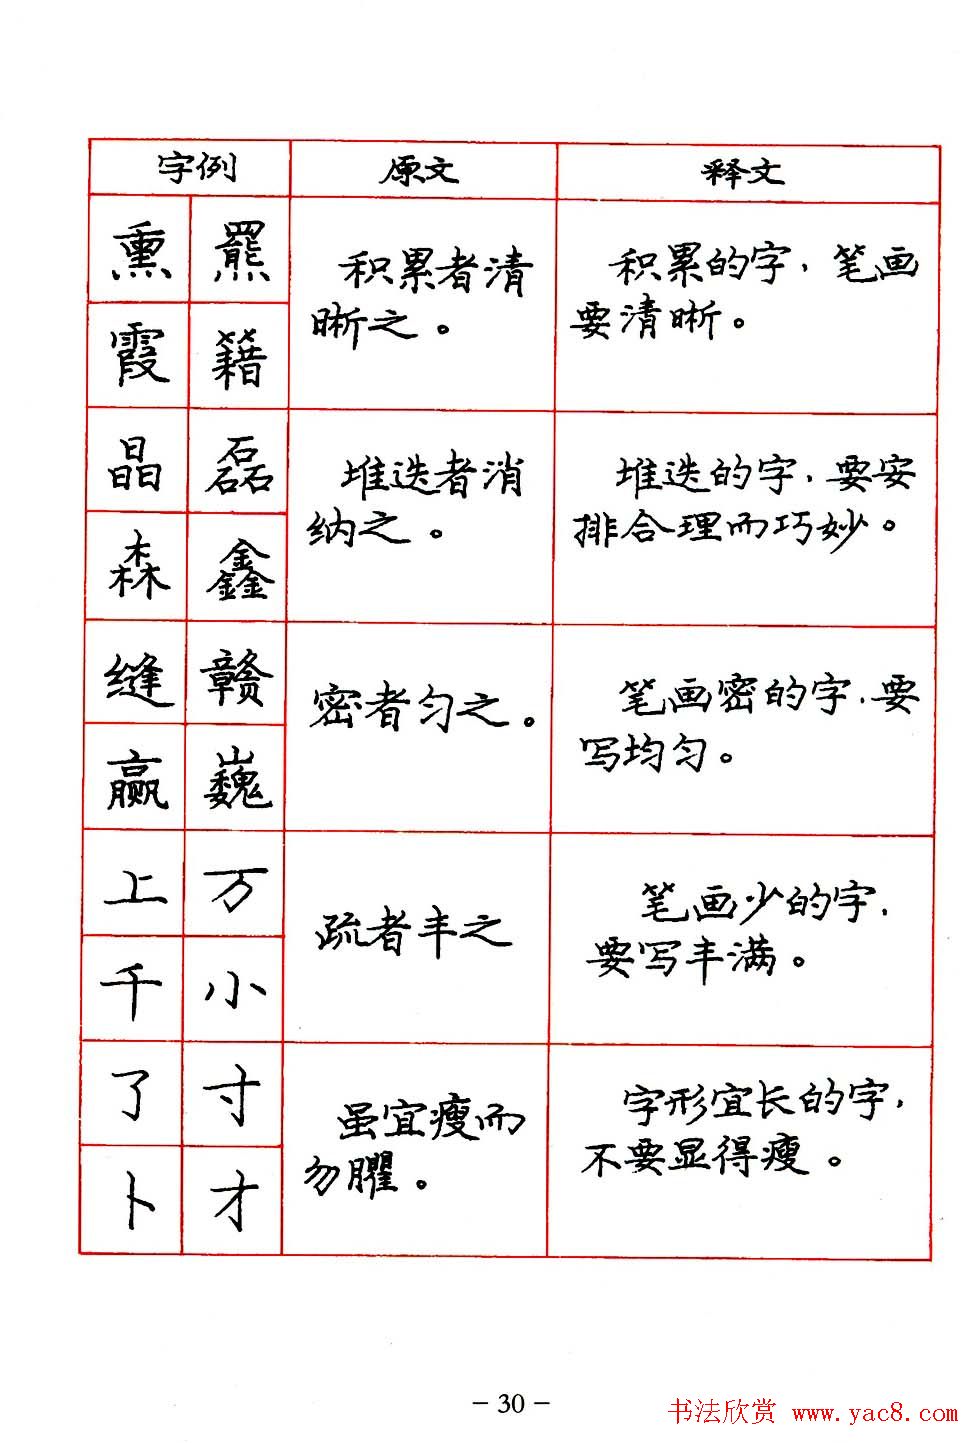 字例 原文 释文
熏 羆
积累者清
晰之。
积累的字，笔画
要清晰。
霞 籍
晶 磊
堆迭者消
纳之。
堆迭的字，要安
排合理而巧妙。
森 鑫
缝 赣
密者匀之。
笔画密的字，要
写均匀。
赢 巍
上 万
疏者丰之
笔画少的字，
要写丰满。
千 小
了 寸
虽宜瘦而
勿臞。
字形宜长的字，
不要显得瘦。
卜 才
- 30 -
书法欣赏 www.yac8.com